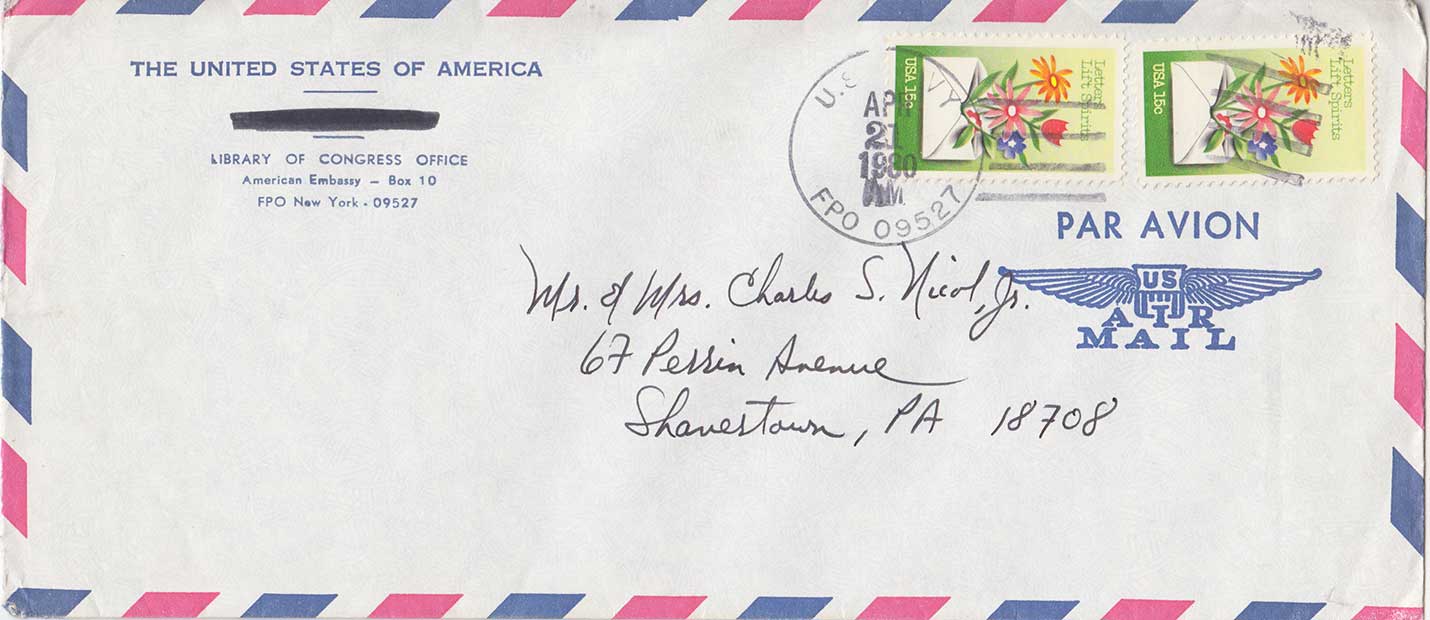 THE UNITED STATES OF AMERICA
LIBRARY OF CONGRESS OFFICE
American Embassy – Box 10
FPO New York - 09527
U.S. VY
APR
21
1980
AM
FPO 09527
Letters
Lift Spirits
USA 15c
Letters
Lift Spirits
USA 15c
PAR AVION
US
AIR
MAIL
Mr. & Mrs. Charles S. Nicol, Jr.
67 Perrin Avenue
Shavertown, PA 18708